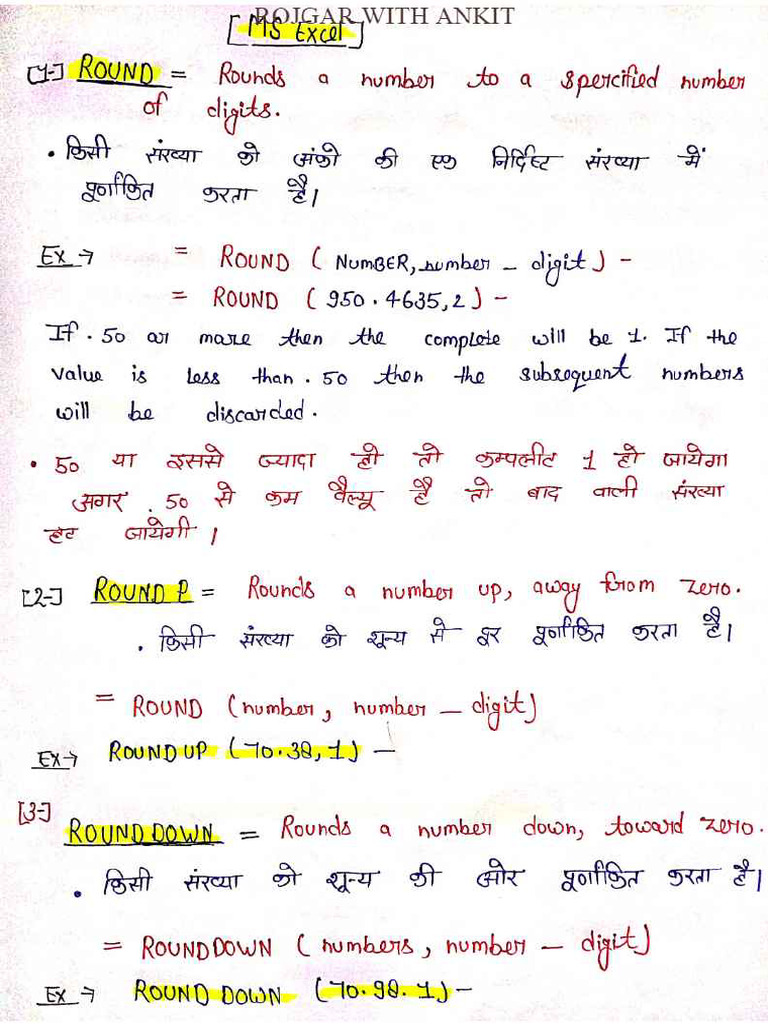 ROJGAR WITH ANKIT
[MS Excel]
[1-] ROUND = Rounds a number to a spercified number
of digits.
• किसी संख्या को अंको की एक निर्दिष्ट संख्या में
पूर्णांकित करता है।
Ex → = ROUND (NUMBER, number – digit) –
= ROUND (950.4635,2) –
If .50 or more then the complete will be 1. If the
value is less than .50 then the subsequent numbers
will be discarded.
• 50 या इससे ज्यादा हो तो कम्पलीट 1 हो जायेगा
अगर .50 से कम वैल्यू है तो बाद वाली संख्या
हट जायेगी।
[2-] ROUND P = Rounds a number up, away from zero.
• किसी संख्या को शून्य से दूर पूर्णांकित करता है।
= ROUND (number, number – digit)
Ex → ROUND UP (70.38,1) –
[3-]
ROUND DOWN = Rounds a number down, toward zero.
• किसी संख्या को शून्य की ओर पूर्णांकित करता है।
= ROUND DOWN (numbers, number – digit)
Ex → ROUND DOWN (70.98.1) –